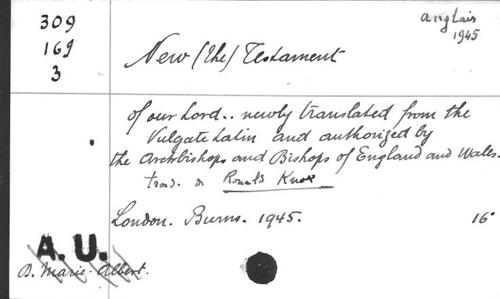 309
169
3
anglais
1945
New (the) Testament
of our Lord.. newly translated from the
Vulgate Latin and authorized by
the Archbishops and Bishops of England and Wales.
trad. Ronald Knox
London. Burns. 1945. 16°
A. U.
B. Marie-Albert.